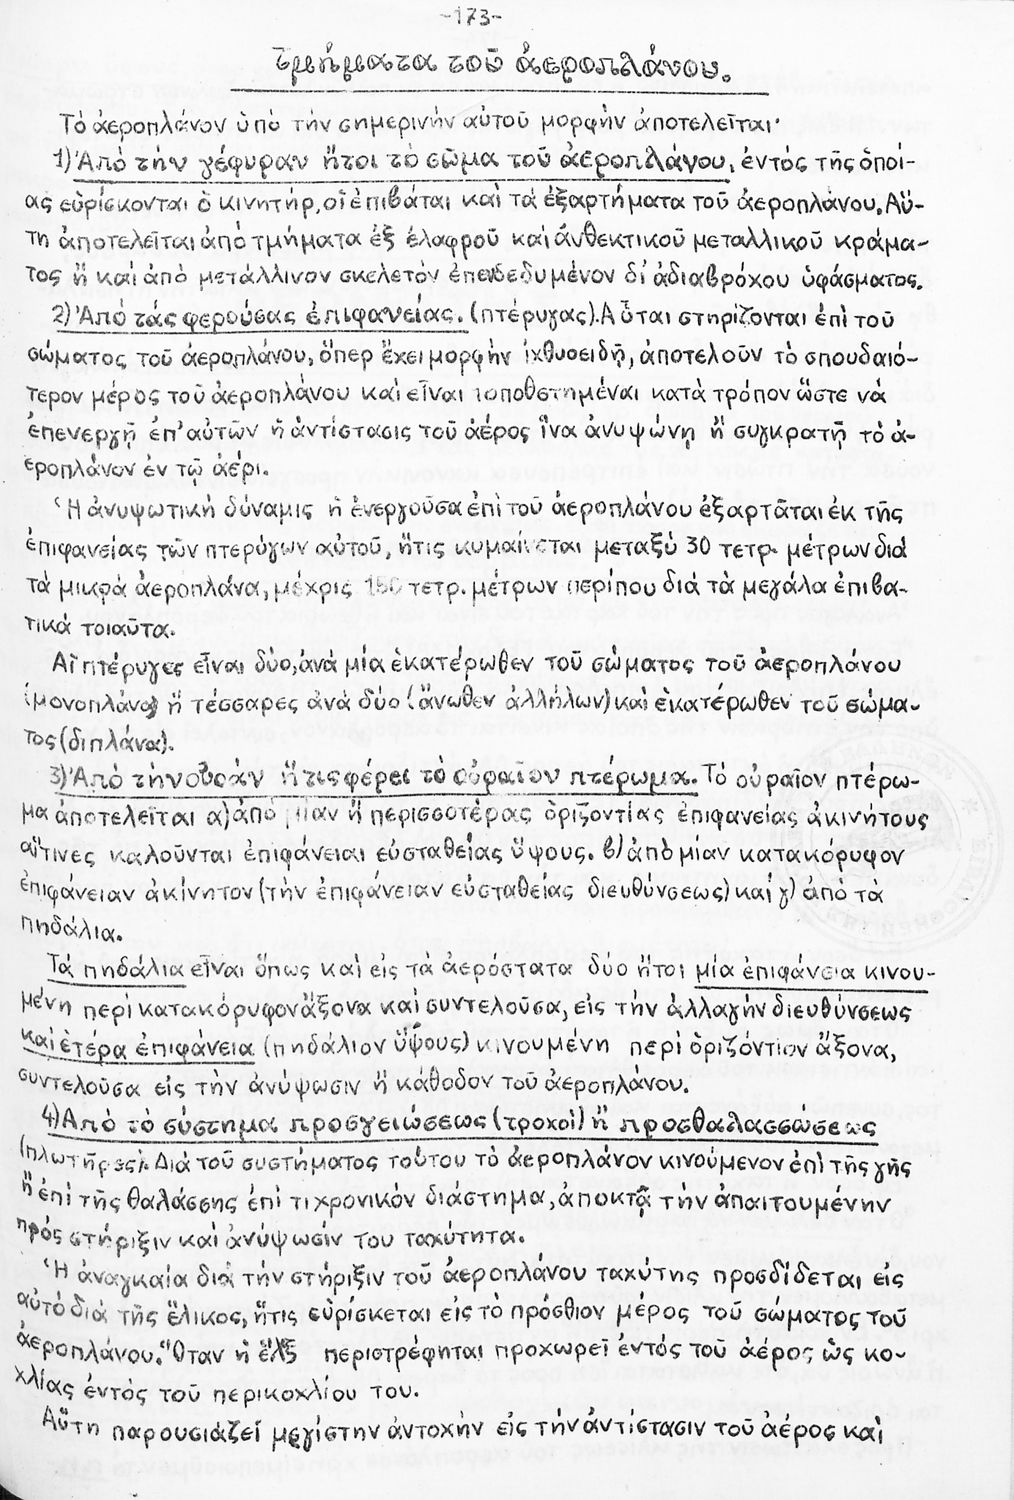 -173-
Τμήματα τοῦ ἀεροπλάνου.
Τό ἀεροπλάνον ὑπό τήν σημερινήν αὐτοῦ μορφήν ἀποτελεῖται·
1) Ἀπό τήν γέφυραν ἤτοι τό σῶμα τοῦ ἀεροπλάνου, ἐντός τῆς ὁποί-
ας εὑρίσκονται ὁ κινητήρ, οἱ ἐπιβάται καί τά ἐξαρτήματα τοῦ ἀεροπλάνου. Αὕ-
τη ἀποτελεῖται ἀπό τμήματα ἐξ ἐλαφροῦ καί ἀνθεκτικοῦ μεταλλικοῦ κράμα-
τος ἤ καί ἀπό μετάλλινον σκελετόν ἐπενδεδυμένον δι' ἀδιαβρόχου ὑφάσματος.
2) Ἀπό τάς φερούσας ἐπιφανείας. (πτέρυγας). Αὗται στηρίζονται ἐπί τοῦ
σώματος τοῦ ἀεροπλάνου, ὅπερ ἔχει μορφήν ἰχθυοειδῆ, ἀποτελοῦν τό σπουδαιό-
τερον μέρος τοῦ ἀεροπλάνου καί εἶναι τοποθετημέναι κατά τρόπον ὥστε νά
ἐπενεργῇ ἐπ' αὐτῶν ἡ ἀντίστασις τοῦ ἀέρος ἵνα ἀνυψώνῃ ἤ συγκρατῇ τό ἀ-
εροπλάνον ἐν τῷ ἀέρι.
Ἡ ἀνυψωτική δύναμις ἡ ἐνεργοῦσα ἐπί τοῦ ἀεροπλάνου ἐξαρτᾶται ἐκ τῆς
ἐπιφανείας τῶν πτερύγων αὐτοῦ, ἥτις κυμαίνεται μεταξύ 30 τετρ. μέτρων διά
τά μικρά ἀεροπλάνα, μέχρις 150 τετρ. μέτρων περίπου διά τά μεγάλα ἐπιβα-
τικά τοιαῦτα.
Αἱ πτέρυγες εἶναι δύο, ἀνά μία ἑκατέρωθεν τοῦ σώματος τοῦ ἀεροπλάνου
(μονοπλάνα) ἤ τέσσαρες ἀνά δύο (ἄνωθεν ἀλλήλων) καί ἑκατέρωθεν τοῦ σώμα-
τος (διπλάνα).
3) Ἀπό τήν οὐράν ἥτις φέρει τό οὐραῖον πτέρωμα. Τό οὐραῖον πτέρω-
μα ἀποτελεῖται α) ἀπό μίαν ἤ περισσοτέρας ὁριζοντίας ἐπιφανείας ἀκινήτους
αἵτινες καλοῦνται ἐπιφάνειαι εὐσταθείας ὕψους. β) ἀπό μίαν κατακόρυφον
ἐπιφάνειαν ἀκίνητον (τήν ἐπιφάνειαν εὐσταθείας διευθύνσεως) καί γ) ἀπό τά
πηδάλια.
Τά πηδάλια εἶναι ὅπως καί εἰς τά ἀερόστατα δύο ἤτοι μία ἐπιφάνεια κινου-
μένη περί κατακόρυφον ἄξονα καί συντελοῦσα, εἰς τήν ἀλλαγήν διευθύνσεως
καί ἑτέρα ἐπιφάνεια (πηδάλιον ὕψους) κινουμένη περί ὁριζόντιον ἄξονα,
συντελοῦσα εἰς τήν ἀνύψωσιν ἤ κάθοδον τοῦ ἀεροπλάνου.
4) Ἀπό τό σύστημα προσγειώσεως (τροχοί) ἤ προσθαλασσώσεως
(πλωτῆρες). Διά τοῦ συστήματος τούτου τό ἀεροπλάνον κινούμενον ἐπί τῆς γῆς
ἤ ἐπί τῆς θαλάσσης ἐπί τι χρονικόν διάστημα, ἀποκτᾷ τήν ἀπαιτουμένην
πρός στήριξιν καί ἀνύψωσίν του ταχύτητα.
Ἡ ἀναγκαία διά τήν στήριξιν τοῦ ἀεροπλάνου ταχύτης προσδίδεται εἰς
αὐτό διά τῆς ἕλικος, ἥτις εὑρίσκεται εἰς τό πρόσθιον μέρος τοῦ σώματος τοῦ
ἀεροπλάνου. Ὅταν ἡ ἕλιξ περιστρέφηται προχωρεῖ ἐντός τοῦ ἀέρος ὡς κο-
χλίας ἐντός τοῦ περικοχλίου του.
Αὕτη παρουσιάζει μεγίστην ἀντοχήν εἰς τήν ἀντίστασιν τοῦ ἀέρος καί